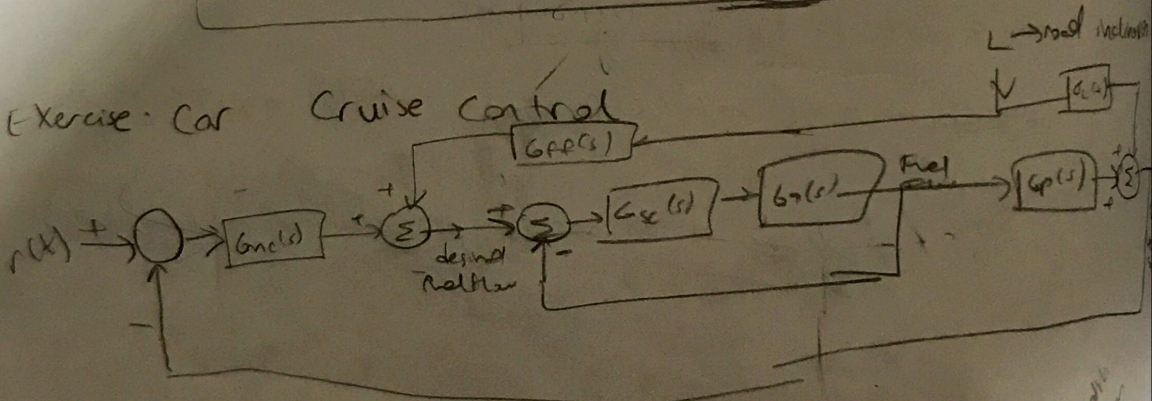 L → road inclination
Exercise: Car Cruise Control
GL(s)
Gff(s)
r(t) + Gmc(s) + + Σ + Σ Gsc(s) Gv(s) Fuel Gp(s) + Σ
+
desired
fuel flow
-
-